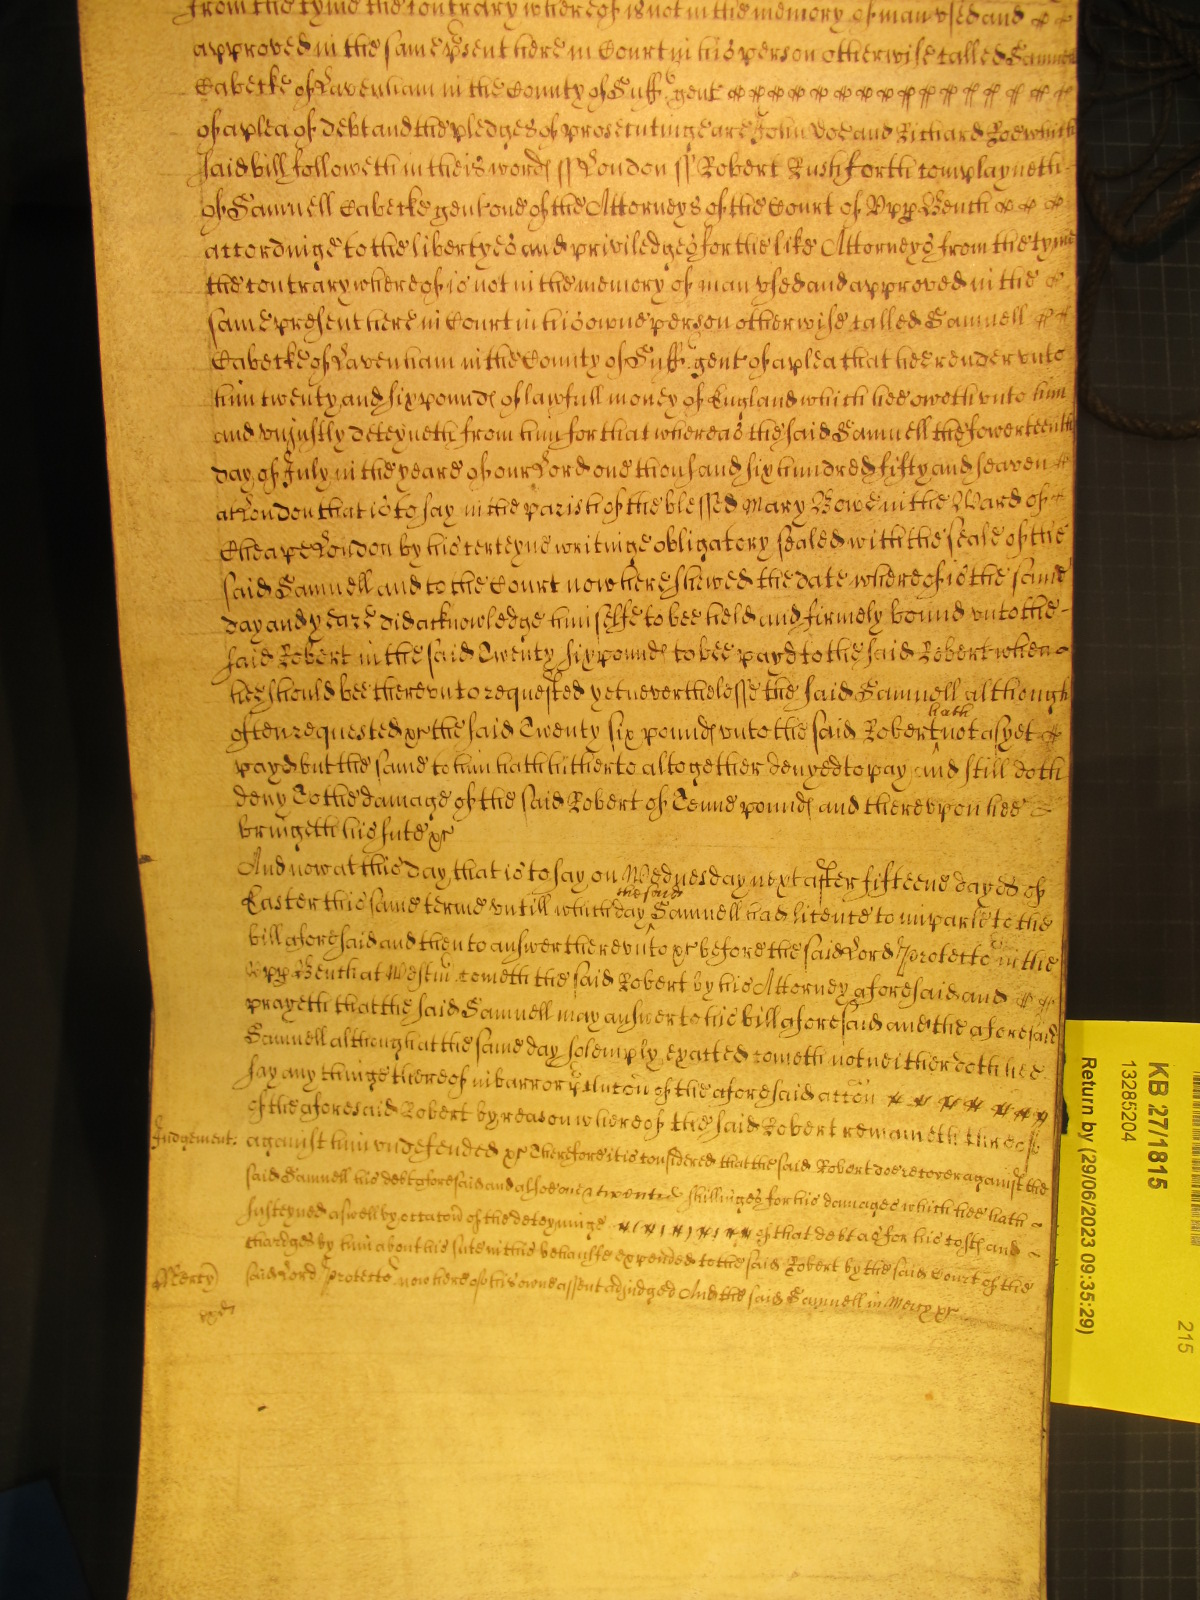 from the tyme the contrary whereof is not in the memory of man vsed and
approved in the same p'sent here in Court in his person otherwise called Samuell
Cabecke of Lavenham in the County of Suff. gent
of a plea of debt and the pledges of prosecutinge are John Doe and Richard Roe which
said bill followeth in theis word ss London ss Robert Rushforth complayneth
of Samuell Cabecke gent one of the Attorneys of the Court of Vpp Bench
accordinge to the libertyes and priviledges for the like Attorneys from the tyme
the contrary whereof is not in the memory of man vsed and approved in the
same present here in Court in his owne person otherwise called Samuell
Cabecke of Lavenham in the County of Suff. gent of a plea that hee render vnto
him twenty and six pound of lawfull money of England which hee oweth vnto him
and vniustly deteyneth from him for that whereas the said Samuell the fowerteenth
day of July in the yeare of our Lord one thousand six hundred fifty and seaven
at London that is to say in the parish of the blessed Mary Bowe in the Ward of
Cheape London by his certeyne writinge obligatory sealed with the seale of the
said Samuell and to the Court now here shewed the date whereof is the same
day and yeare did acknowledge himselfe to bee held and firmely bound vnto the
said Robert in the said Twenty six pound to bee payd to the said Robert when
hee should bee therevnto requested yet neverthelesse the said Samuell although
hath
often requested &c the said Twenty six pound vnto the said Robert not as yet
payd but the same to him hath hitherto altogether denyed to pay and still doth
deny To the damage of the said Robert of Tenne pound and therevpon hee
bringeth his sute &c
And now at this day that is to say on Wednesday next after fifteene dayes of
the said
Easter this same terme vntill which day Samuell had licence to imparle to the
bill aforesaid and then to answer therevnto &c before the said Lord Protecto in the
Vpp Bench at Westm cometh the said Robert by his Attorney aforesaid and
prayeth that the said Samuell may answer to his bill aforesaid and the aforesaid
Samuell although at the same day solemply exacted cometh not neither doth hee
say any thinge thereof in barr or p'clucon of the aforesaid accon
of the aforesaid Robert by reason whereof the said Robert remaineth thereof
Judgement: against him vndefended &c Therefore it is considered that the said Robert doe recover against the
said Samuell his debt aforesaid and also shillinges for his damages which hee hath
susteyned aswell by occacon of the deteyninge of that debt as for his cost and
chardges by him about his sute in this behaulfe expended to the said Robert by the said Court of the
Mercy said Lord Protecto now here of his owne assent adiudged And the said Samuell in Mercy &c
KB 27/1815
13285204
Return by (29/06/2023 09:35:29)
215